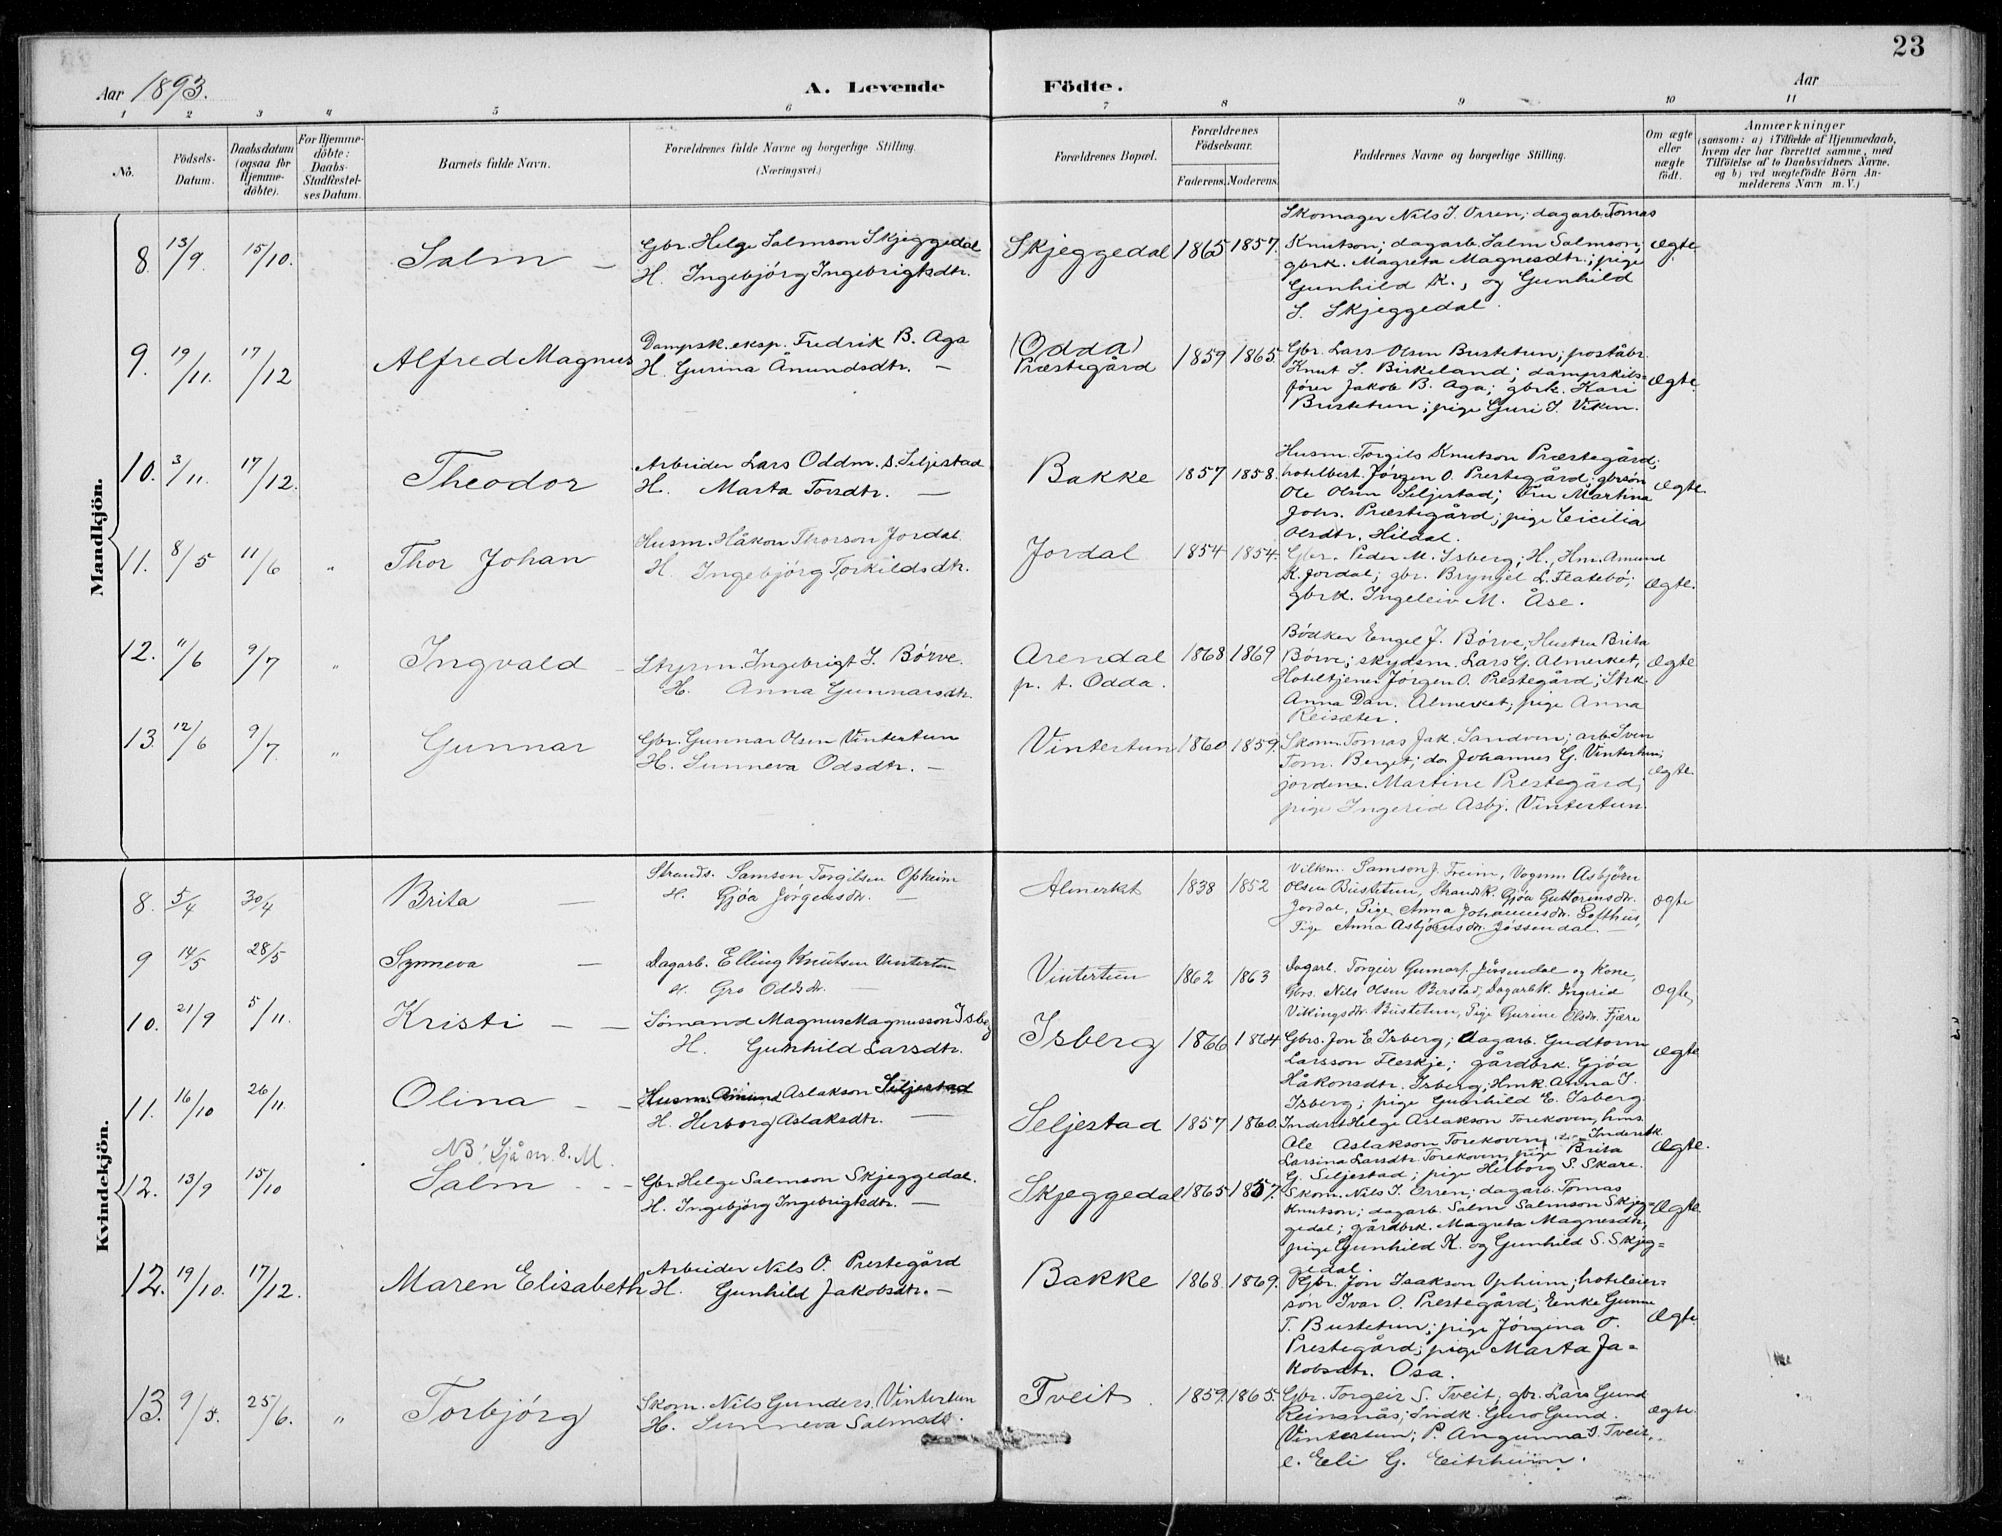 23
Aar 1893.
A. Levende Födte.
Aar
1 2 3 4 5 6 7 8 9 10 11
No.
Födsels-Datum.
Daabsdatum (ogsaa for Hjemme-döbte).
For Hjemme-döbte: Daabs-Stadfestel-ses Datum.
Barnets fulde Navn.
Forældrenes fulde Navne og borgerlige Stilling.
(Næringsvei.)
Forældrenes Bopæl.
Forældrenes Födselsaar.
Faderens. Moderens.
Faddernes Navne og borgerlige Stilling.
Om ægte eller uægte födt.
Anmærkninger
(saasom: a) i Tilfælde af Hjemmedaab,
hvem der har forrettet samme, med
Tilföielse af to Daabsvidners Navne.
og b) ved uægtefödte Börn An-
melderens Navn m. V.)
Mandkjön.
8. 13/9. 15/10. Salm —
Gbr. Helge Salmson Skjeggedal
H. Ingebjörg Ingebrigtsdtr.
Skjeggedal 1865 1857.
Skomager Nils J. Orren; dagarb. Tomas
Knutson; dagarb. Salm Salmson;
gbrk. Magreta Magnesdtr.; pige
Gunhild K., og Gunhild
S. Skjeggedal.
Ægte.
9. 19/11. 17/12 Alfred Magnus
Dampsk. eksp. Fredrik B. Aga
H. Gurina Ånundsdtr. —
(Odda)
Præstegård 1859 1865.
Gbr. Lars Olsen Bustetun; poståbr.
Knut S. Birkeland; dampskibs-
förer Jakob B. Aga; gbrk. Kari
Bustetun; pige Guri J. Viken.
Ægte.
10. 3/11. 17/12. Theodor
Arbeider Lars Oddm. S. Seljestad
H. Marta Torsdtr. —
Bakke 1857 1858.
Husm. Torgils Knutson Præstegård;
hotelbest. Jörgen O. Prestegård; gbrsön
Ole Olsen Seljestad; Fru Martina
Johs. Præstegård; pige Cicilia
Olsdtr. Hildal.
Ægte.
11. 8/5 11/6 " Thor Johan
Husm. Håkon Thorson Jordal
H. Ingebjörg Torkildsdtr.
Jordal 1854 1854.
Gbr. Peder M. Isberg; H., Hm. Amund
K. Jordal; gbr. Bryngel L. Flatebö;
gbrk. Ingeleiv M. Åse.
Ægte.
12. 11/6 9/7 " Ingvald
Styrm. Ingebrigt J. Börve.
H. Anna Gunnarsdtr.
Arendal
p. t. Odda. 1868 1869
Bödker Engel J. Börve; Hustru Brita
Börve; skydsm. Lars G. Almerket,
Hoteltjener Jörgen O. Prestegård; Strk.
Anna Dan. Almerket; pige Anna
Reisæter.
Ægte
13. 12/6 9/7. " Gunnar
Gbr. Gunnar Olsen Vintertun
H. Sunneva Odsdtr. —
Vintertun 1860 1859.
Skom. Tomas Jak. Sandven; arb. Sven
Tom. Berget; do Johannes G. Vintertun;
jordem. Martine Prestegård;
pige Ingerid Asbj. Vintertun.
Ægte.
Kvindekjön.
8. 5/4 30/4 Brita —
Strands. Samson Torgilsen Opheim
H. Gjöa Jörgensdtr. —
Almerkt 1838 1852
Vilkm. Samson J. Freim, Vognm Asbjörn
Olsen Bustetun, Strandk. Gjöa Guttormsdtr.
Jordal, Pige Anna Johannesdtr. Lofthus,
Pige Anna Asbjörnsdtr. Jössendal. —
Ægte
9 14/5 28/5 Synneva —
Dagarb. Elling Knutsen Vintertun
H. Gro Oddsdtr. —
Vintertun 1862 1863
Dagarb. Torgeir Gunnars. Jössendal og Kone,
Gbrs. Nils Olsen Berstad, Dagarbk. Ingerid
Vikingsdtr. Bustetun, Pige Gurine Olsdtr. Fjære
Ægte,
10. 21/9 5/11. Kristi — —
Sömand Magnus Magnusson Isberg
H. Gunhild Larsdtr.
Isberg 1866 1864
Gbrs. Jon E. Isberg; dagarb. Gudtorm
Larsson Fleskje; gårdbrk. Gjöa
Håkonsdtr. Isberg; Hmk. Anna I.
Isberg; pige Gunhild E. Isberg.
Ægte
11. 16/10 26/11. Olina — —
Husm. Amund Aslakson Seljestad
H. Herborg Aslaksdtr. —
Seljestad 1857 1860.
Inderst Helge Aslakson Torekoven, hms.
Ole Aslakson Torekoven; Inderstk.
Larsina Larsdtr. Torekoven, pige Brita
G. Seljestad; pige Helborg S. Skare.
Ægte.
NB! Sjå nr. 8. M.
12. 13/9 15/10 Salm — —
Gbr. Helge Salmson Skjeggedal.
H. Ingebjörg Ingebrigtsdtr. —
Skjeggedal 1865 1857.
Skom. Nils J. Orren; dagarb. Tomas
Knutson; dagarb. Salm Salmson Skjeg-
gedal; gårdbrk. Magreta Magnesdtr,
pige Gunhild K. og Gunhild S. Skjeg=
gedal.
Ægte.
12. 19/10. 17/12. Maren Elisabeth
Arbeider Nils O. Prestegård
H. Gunhild Jakobsdtr. —
Bakke 1868 1869.
Gbr. Jon Isakson Opheim; hoteleier-
sön Ivar O. Prestegård; Enke Gunne
T. Bustetun; pige Jörgina O.
Prestegård; pige Marta Ja=
kobsdtr. Osa.
Ægte
13. 9/5. 25/6. " Torbjörg
Skom. Nils Gunders. Vintertun
H. Sunneva Salmsdt.
Tveit. 1859. 1865.
Gbr. Torgeir S. Tveit; gbr. Lars Gund
Reinsnås; Indk. Guro Gund.
Vintertun; P. Angunna S. Tveit,
e. Eli G. Eitrheim.
Ægte.